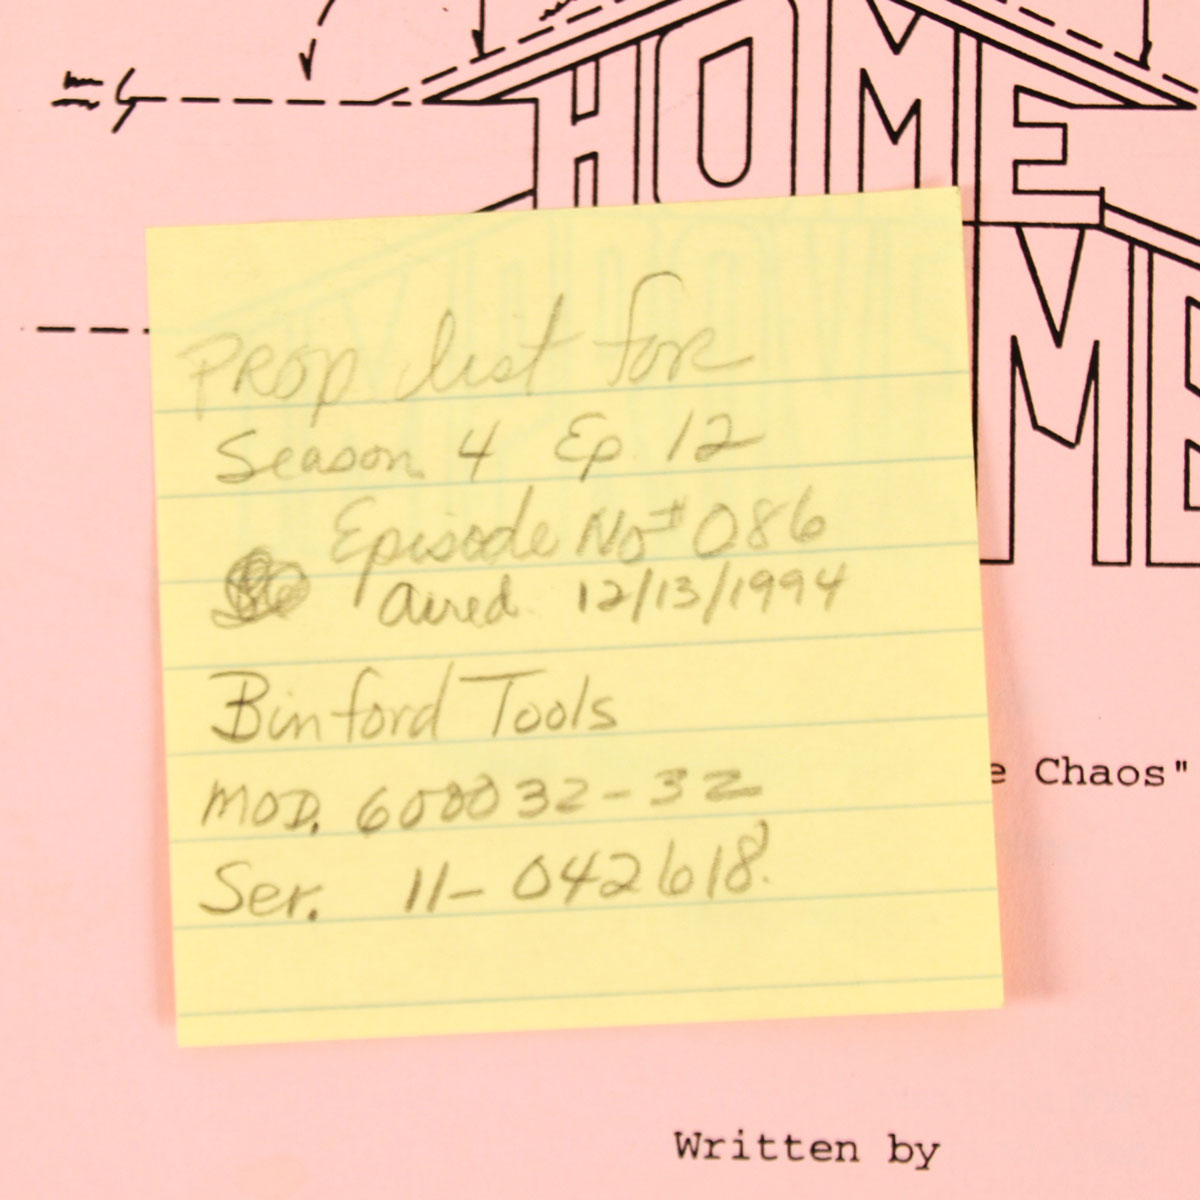 HOME
Prop list for
Season 4 Ep. 12
Episode No# 086
Aired 12/13/1994
Binford Tools
MOD. 600032-32
Ser. 11-042618
e Chaos"
Written by